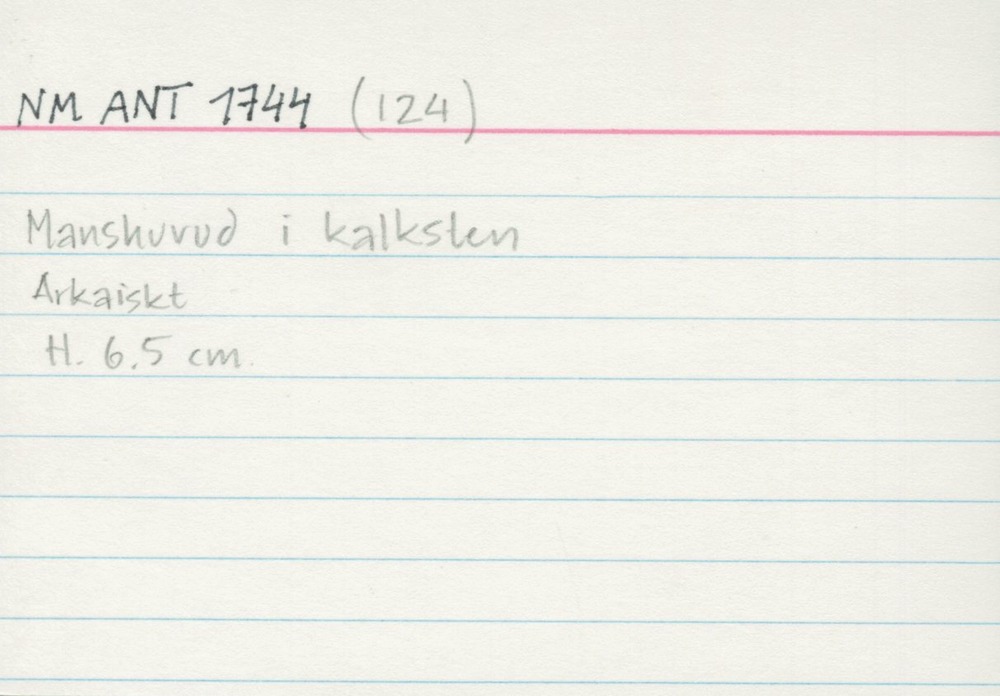 NM ANT 1744 (124)
Manshuvud i kalksten
Arkaiskt
H. 6.5 cm.